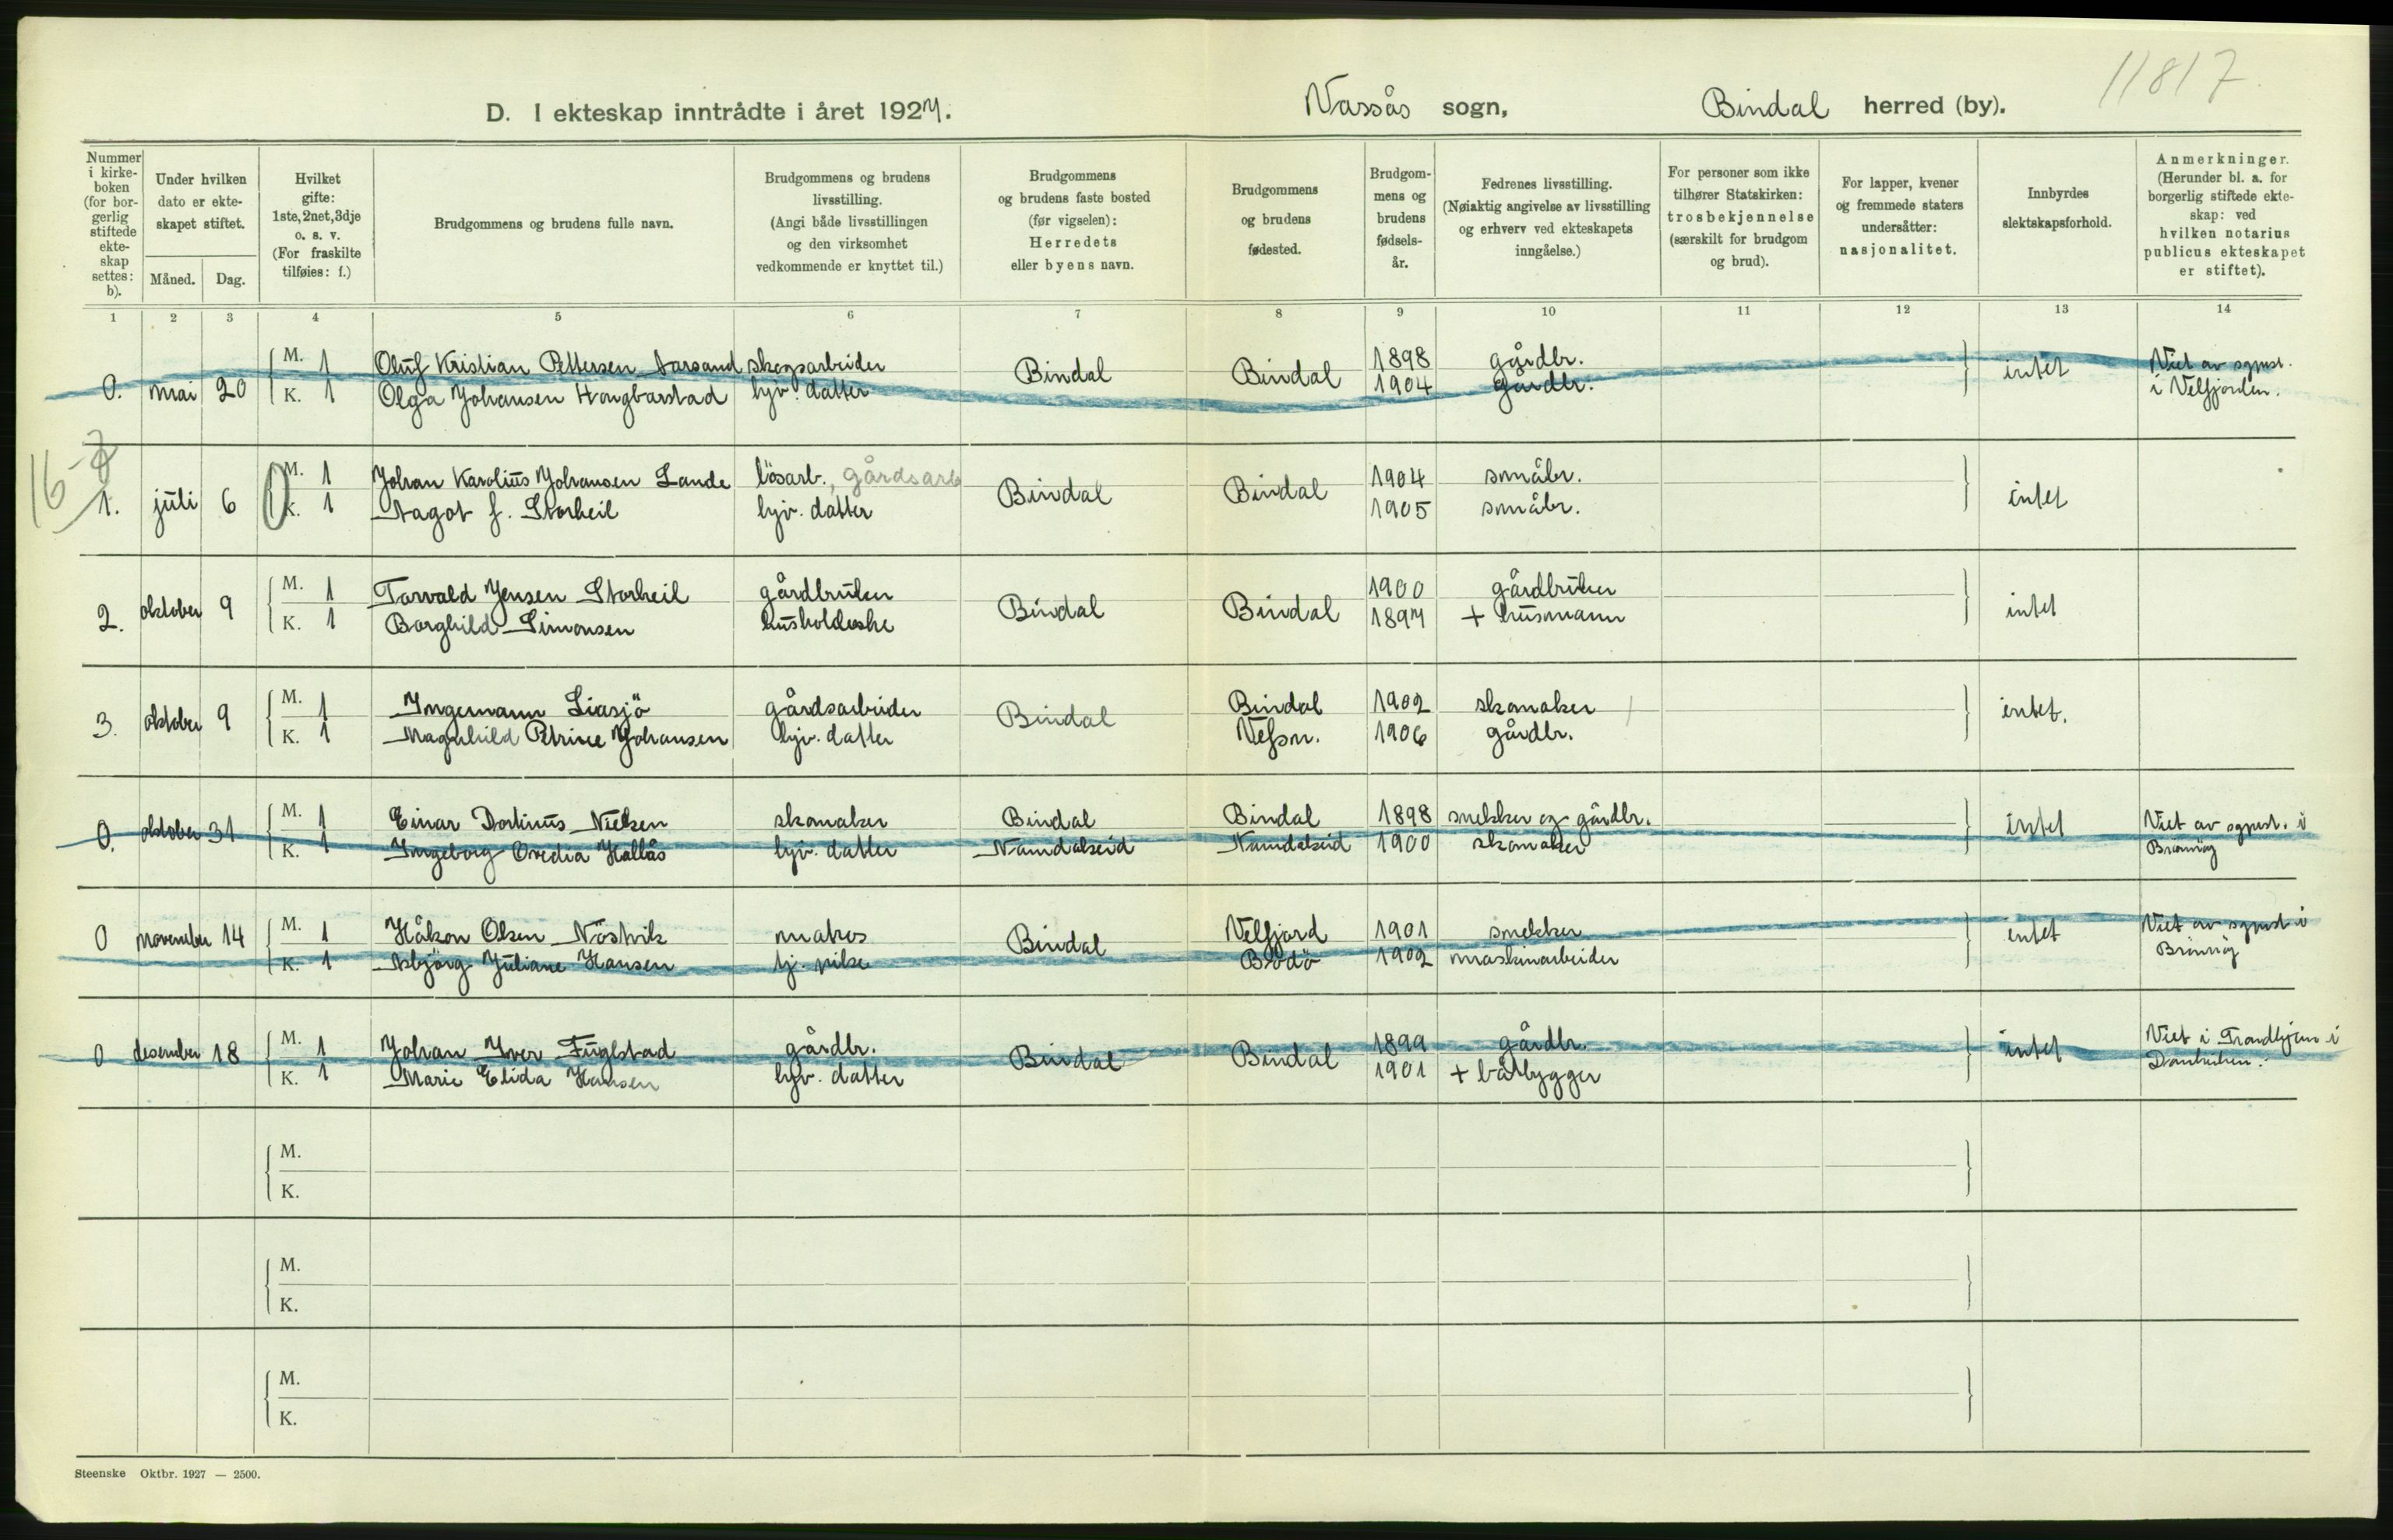 11817
D. I ekteskap inntrådte i året 1927. Vassås sogn, Bindal herred (by).
Nummer i kirkeboken (for borgerlig stiftede ekteskap settes: b).
Under hvilken dato er ekteskapet stiftet.
Måned. Dag.
Hvilket gifte: 1ste, 2net, 3dje o. s. v. (For fraskilte tilføies: f.)
Brudgommens og brudens fulle navn.
Brudgommens og brudens livsstilling. (Angi både livsstillingen og den virksomhet vedkommende er knyttet til.)
Brudgommens og brudens faste bosted (før vigselen): Herredets eller byens navn.
Brudgommens og brudens fødested.
Brudgommens og brudens fødselsår.
Fedrenes livsstilling. (Nøiaktig angivelse av livsstilling og erhverv ved ekteskapets inngåelse.)
For personer som ikke tilhører Statskirken: trosbekjennelse (særskilt for brudgom og brud).
For lapper, kvener og fremmede staters undersåtter: nasjonalitet.
Innbyrdes slektskapsforhold.
Anmerkninger. (Herunder bl. a. for borgerlig stiftede ekteskap: ved hvilken notarius publicus ekteskapet er stiftet).
1 2 3 4 5 6 7 8 9 10 11 12 13 14
M. 1 Oluf Kristian Pettersen Aarsand skogsarbeider 1898 gårdbr. Viet av sgprst.
0. mai 20 Bindal Bindal intet
K. 1 Olga Johansen Haugbarstad hjv. datter 1904 gårdbr. i Velfjorden.
16-7
M. 1 Johan Karolius Johansen Lande lösarb., gårdsarb 1904 småbr.
1. juli 6 Bindal Bindal intet
K. 1 Aagot f. Storheil hjv. datter 1905 småbr.
M. 1 Torvald Jensen Storheil gårdbruker 1900 gårdbruker
2. oktober 9 Bindal Bindal intet
K. 1 Borghild Simonsen husholderske 1897 + husmann
M. 1 Ingemann Liasjö gårdsarbeider Bindal 1902 skomaker
3. oktober 9 Bindal intet.
K. 1 Magnhild Petrine Johansen hjv. datter Vefsn. 1906 gårdbr.
M. 1 Einar Dortinus Nielsen skomaker Bindal Bindal 1898 snekker og gårdbr. Viet av sgprst. i
0. oktober 31 intet
K. 1 Ingeborg Ovedia Hallås hjv. datter Namdalseid Namdalseid 1900 skomaker Brönnöy
M. 1 Håkon Olsen Nöstvik matros Velfjord 1901 snekker Viet av sgprst i
0 november 14 Bindal intet
K. 1 Asbjörg Juliane Hansen tj. pike Bodö 1902 maskinarbeider Brönnöy
M. 1 Johan Iver Fuglstad gårdbr. 1899 gårdbr. Viet i Trondhjem i
0 desember 18 Bindal Bindal intet
K. 1 Marie Elida Hansen hjv. datter 1901 + båtbygger Domkirken.
M.
K.
M.
K.
M.
K.
Steenske Oktbr. 1927 — 2500.